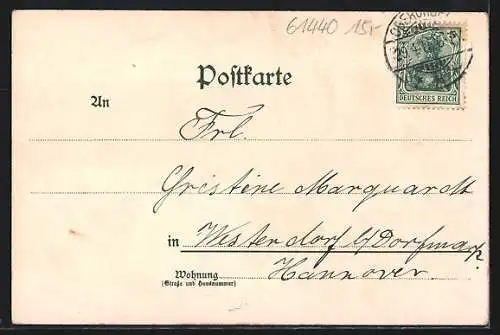 61440 15,-
Postkarte
DEUTSCHES REICH
An
Frl.
Christine Marquardt
in Westerdorf b/Dorfmark
Wohnung Hannover.
(Straße und Hausnummer)